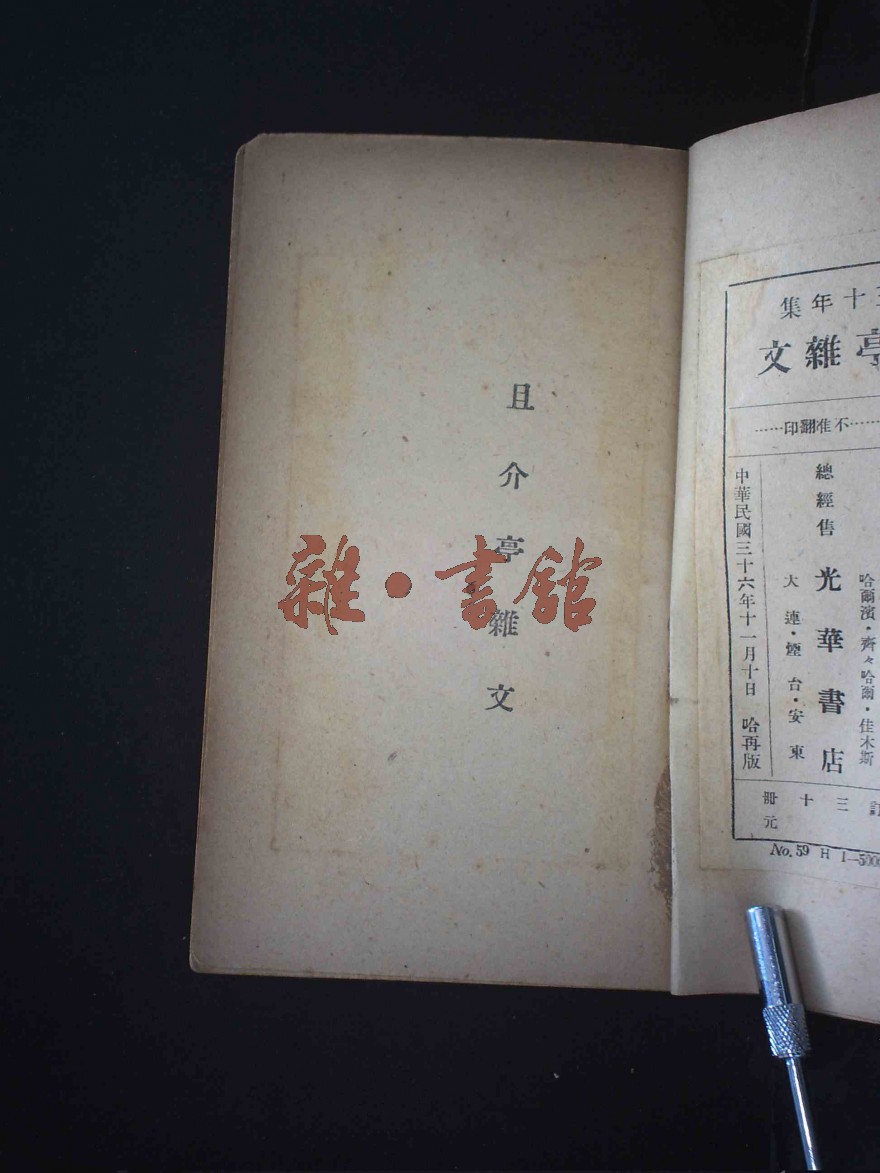 且介亭雜文
雜·書館
三十年集
亭雜文
……不准翻印……
哈爾濱·齊々哈爾·佳木斯
總經售 光華書店
大連·煙台·安東
中華民國三十六年十一月十日 哈再版
訂三十冊元
No.59 H 1—5000